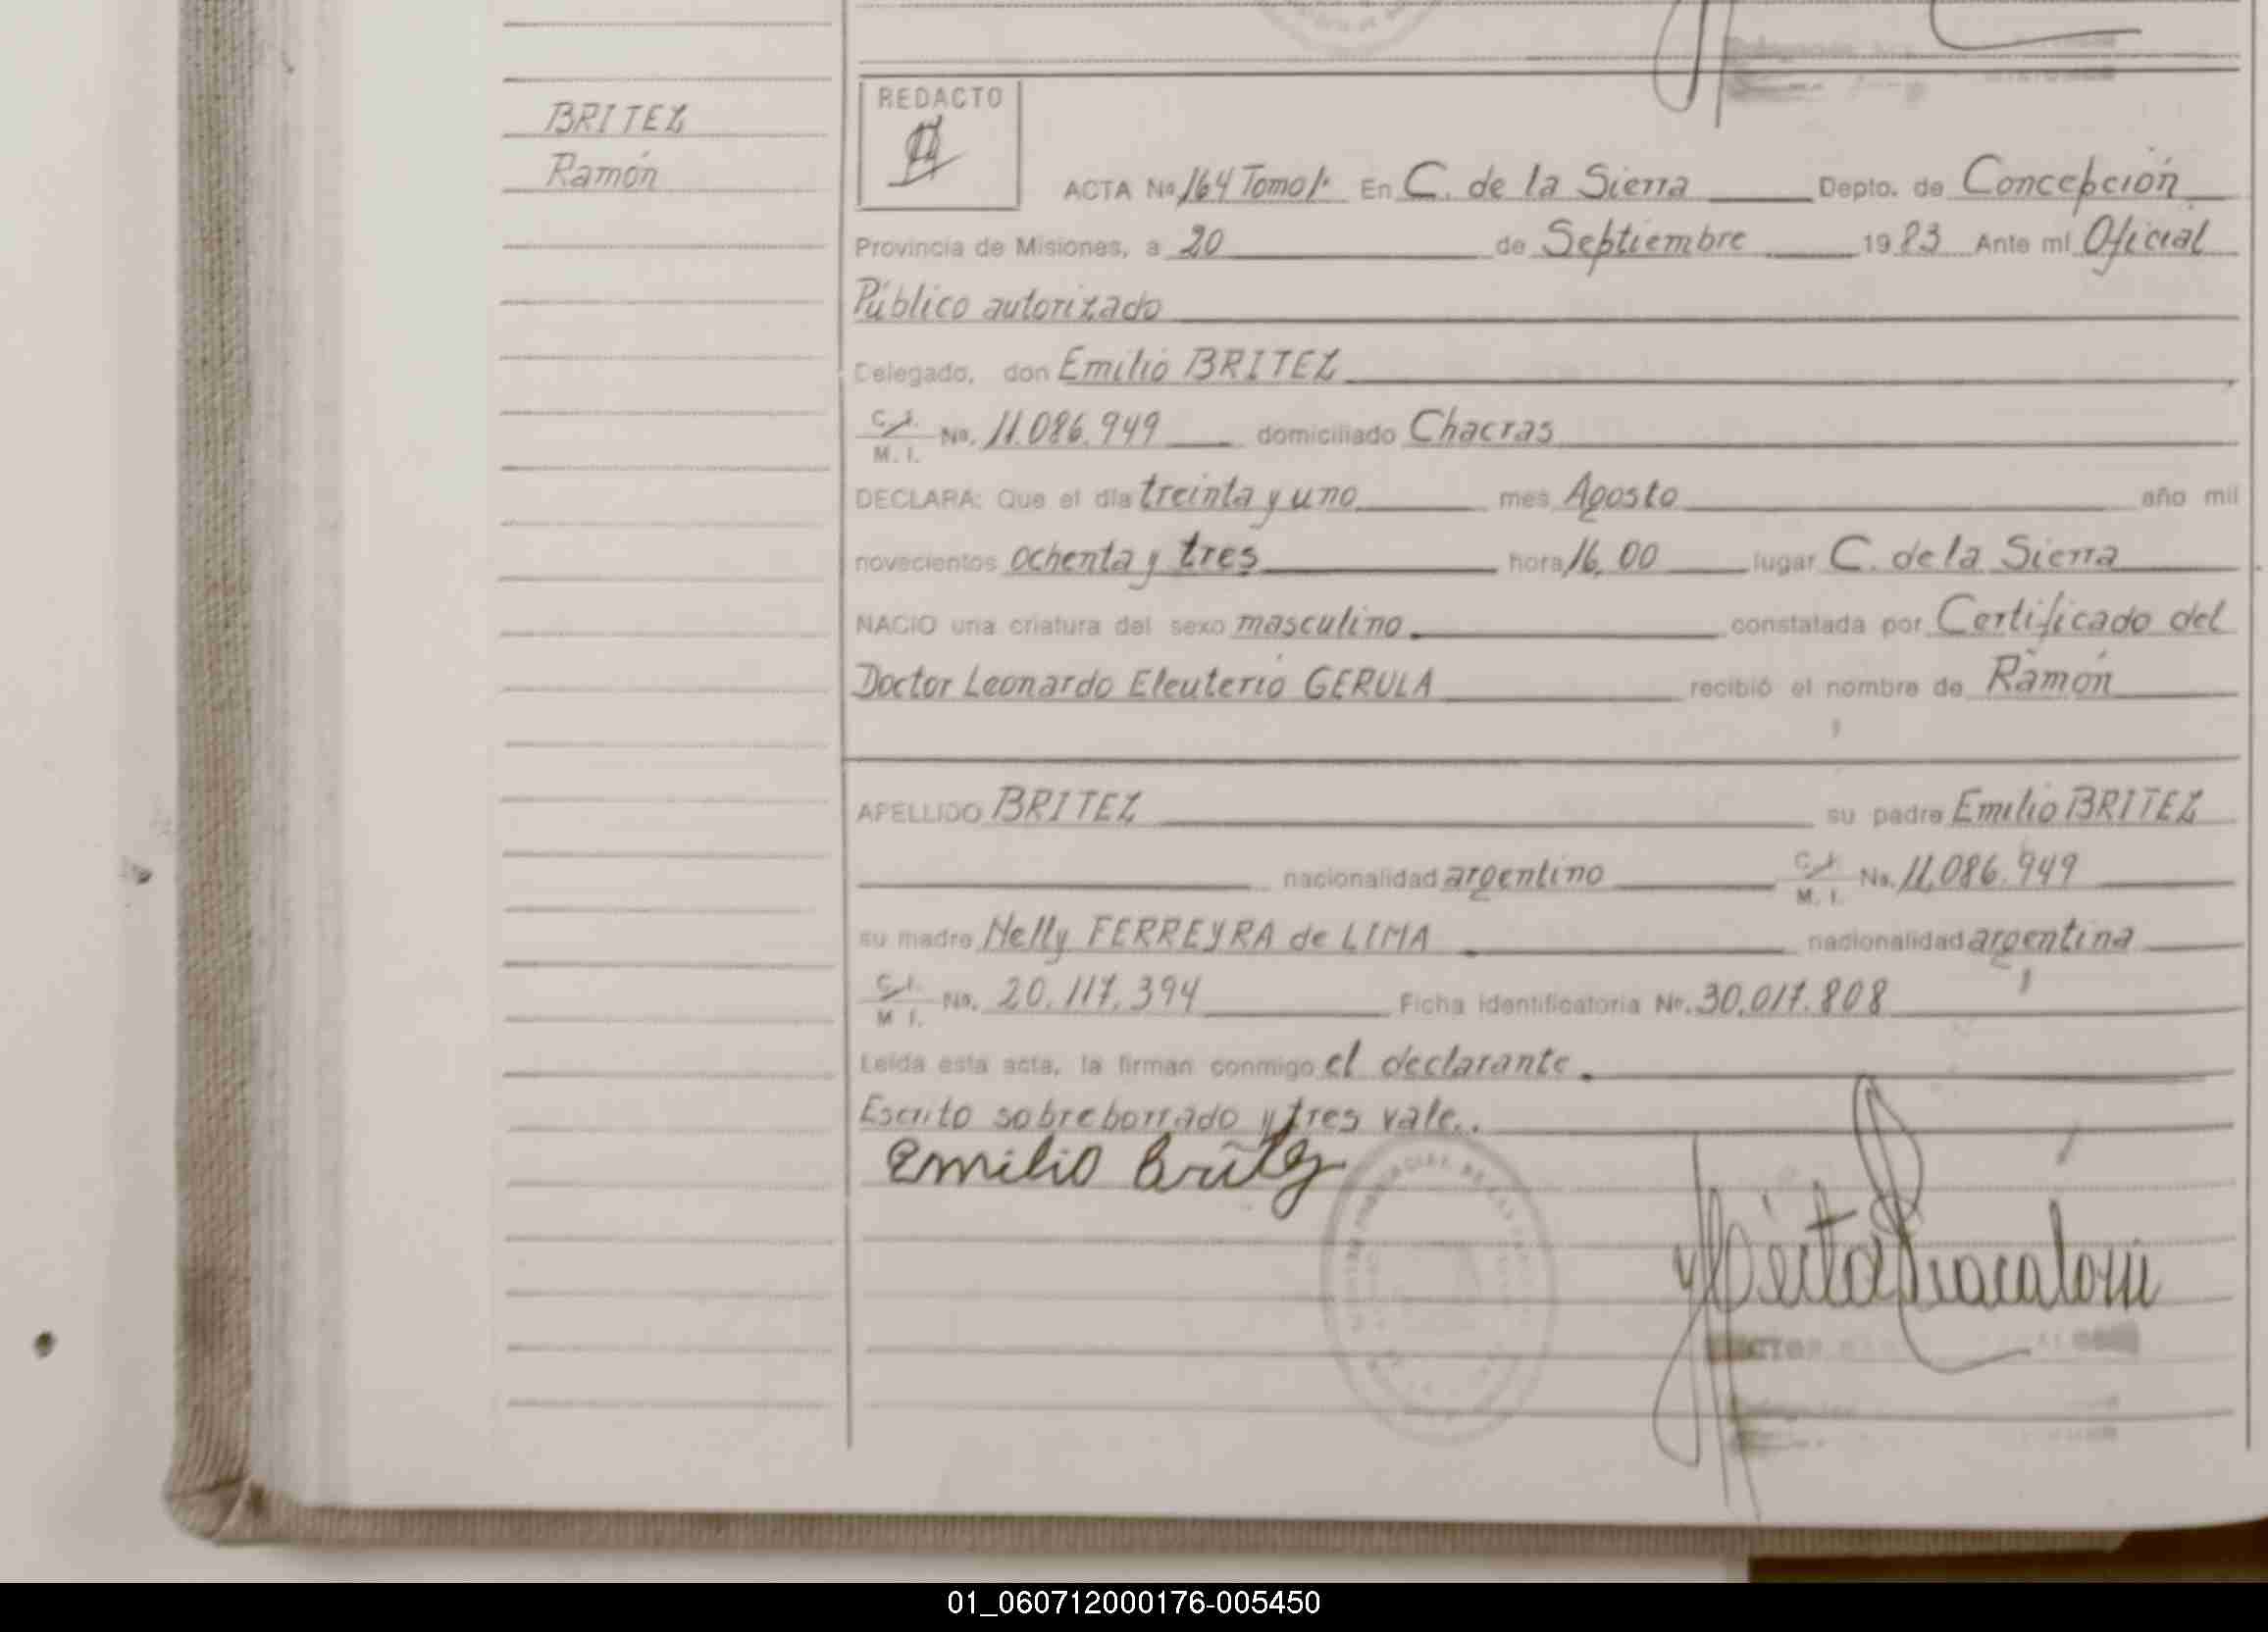 BRITEZ
Ramón
REDACTO
ACTA No 164 Tomo 1º En C. de la Sierra Depto. de Concepción
Provincia de Misiones, a 20 de Septiembre 1983 Ante mí Oficial
Público autorizado
Delegado, don Emilio BRITEZ
C.I. No. 11.086.949 domiciliado Chacras
M. I.
DECLARA: Que el día treinta y uno mes Agosto año mil
novecientos ochenta y tres hora 16,00 lugar C. de la Sierra
NACIO una criatura del sexo masculino. constatada por Certificado del
Doctor Leonardo Eleuterio GERULA recibió el nombre de Ramón
APELLIDO BRITEZ su padre Emilio BRITEZ
nacionalidad argentino C.I. No. 11.086.949
M. I.
su madre Nelly FERREYRA de LIMA nacionalidad argentina
C.I. No. 20.117.394 Ficha identificatoria Nº. 30.017.808
M I.
Leída esta acta, la firman conmigo el declarante.
Escrito sobreborrado y tres vale..
Emilio Britez
01_060712000176-005450